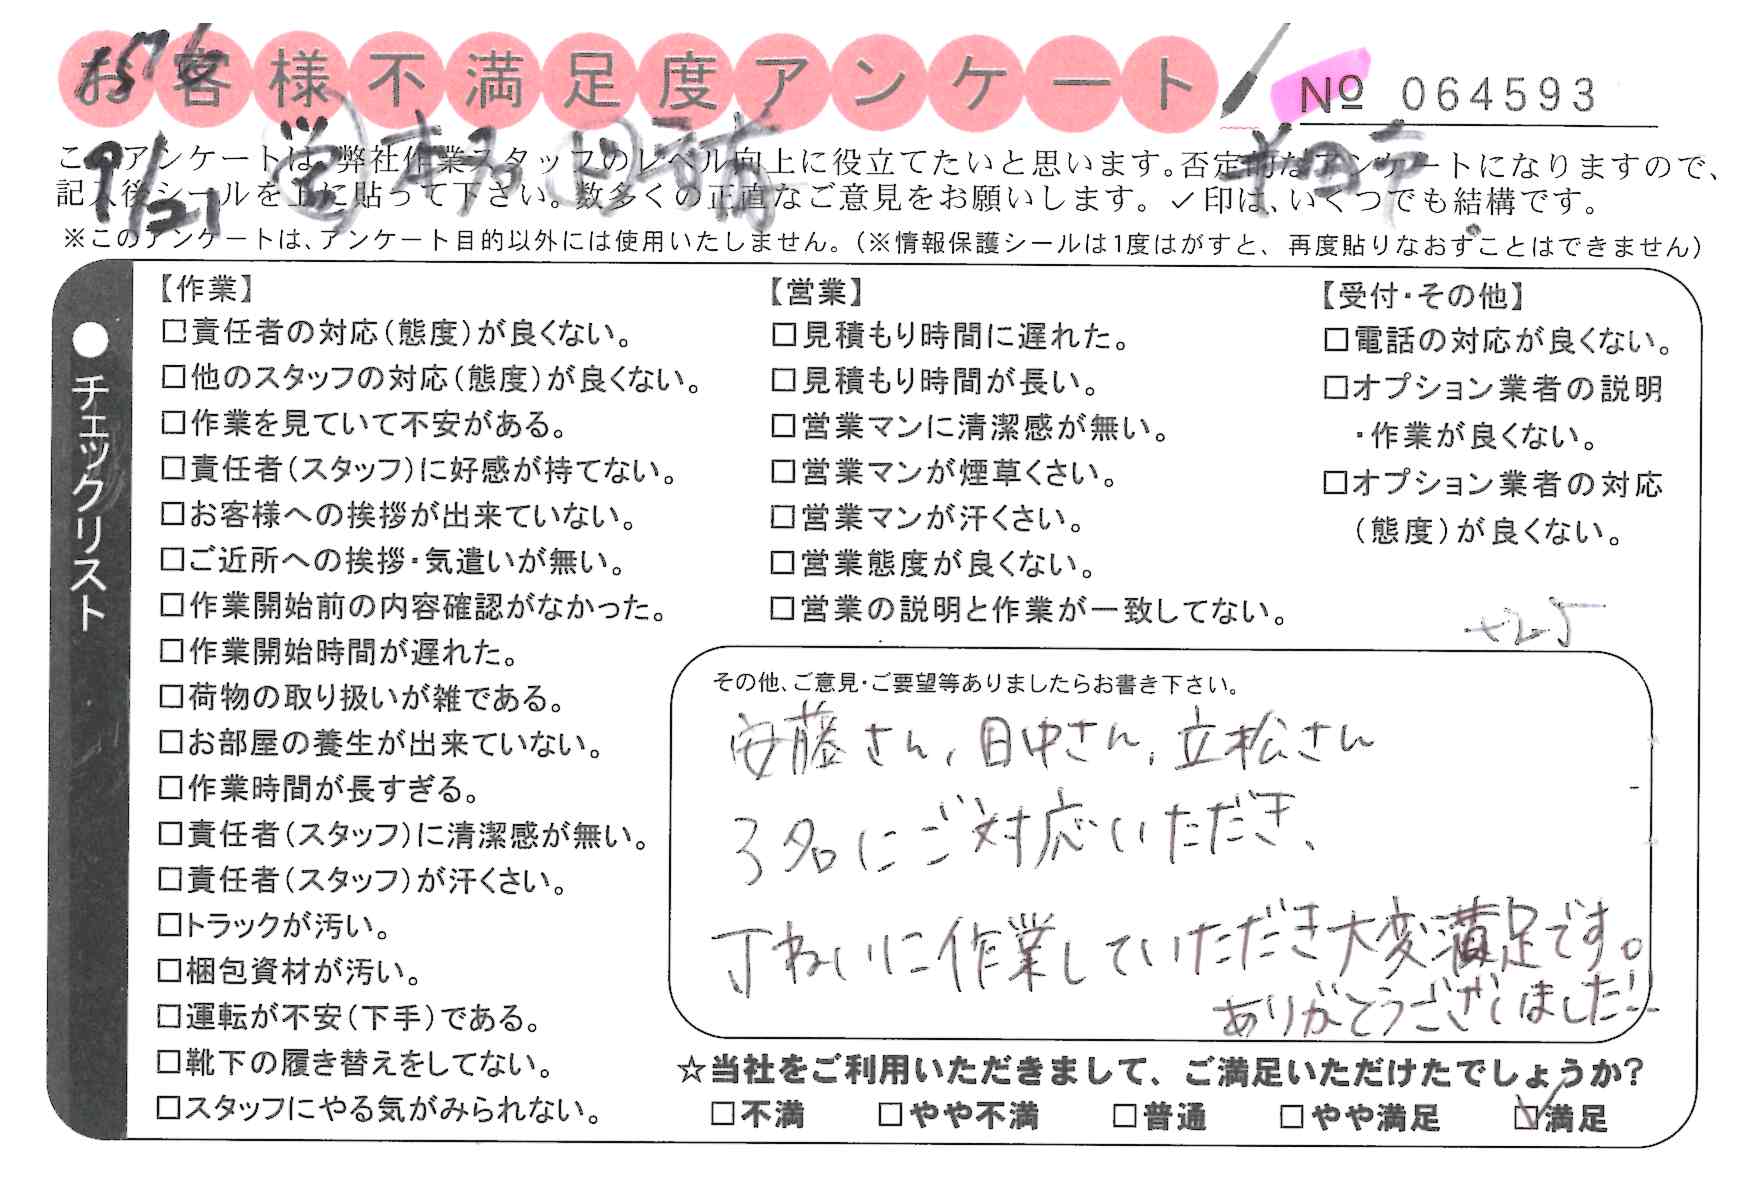 お客様不満足度アンケート
№ 064593
9/21
このアンケートは、弊社作業スタッフのレベル向上に役立てたいと思います。否定的なアンケートになりますので、
記入後シールを上に貼って下さい。数多くの正直なご意見をお願いします。✓印は、いくつでも結構です。
※このアンケートは、アンケート目的以外には使用いたしません。(※情報保護シールは1度はがすと、再度貼りなおすことはできません)
●チェックリスト
【作業】
□責任者の対応(態度)が良くない。
□他のスタッフの対応(態度)が良くない。
□作業を見ていて不安がある。
□責任者(スタッフ)に好感が持てない。
□お客様への挨拶が出来ていない。
□ご近所への挨拶・気遣いが無い。
□作業開始前の内容確認がなかった。
□作業開始時間が遅れた。
□荷物の取り扱いが雑である。
□お部屋の養生が出来ていない。
□作業時間が長すぎる。
□責任者(スタッフ)に清潔感が無い。
□責任者(スタッフ)が汗くさい。
□トラックが汚い。
□梱包資材が汚い。
□運転が不安(下手)である。
□靴下の履き替えをしてない。
□スタッフにやる気がみられない。
【営業】
□見積もり時間に遅れた。
□見積もり時間が長い。
□営業マンに清潔感が無い。
□営業マンが煙草くさい。
□営業マンが汗くさい。
□営業態度が良くない。
□営業の説明と作業が一致してない。
【受付・その他】
□電話の対応が良くない。
□オプション業者の説明
・作業が良くない。
□オプション業者の対応
(態度)が良くない。
その他、ご意見・ご要望等ありましたらお書き下さい。
安藤さん、田中さん、立松さん
3名にご対応いただき、
丁ねいに作業していただき大変満足です。
ありがとうございました!!
☆当社をご利用いただきまして、ご満足いただけたでしょうか?
□不満 □やや不満 □普通 □やや満足 ☑満足